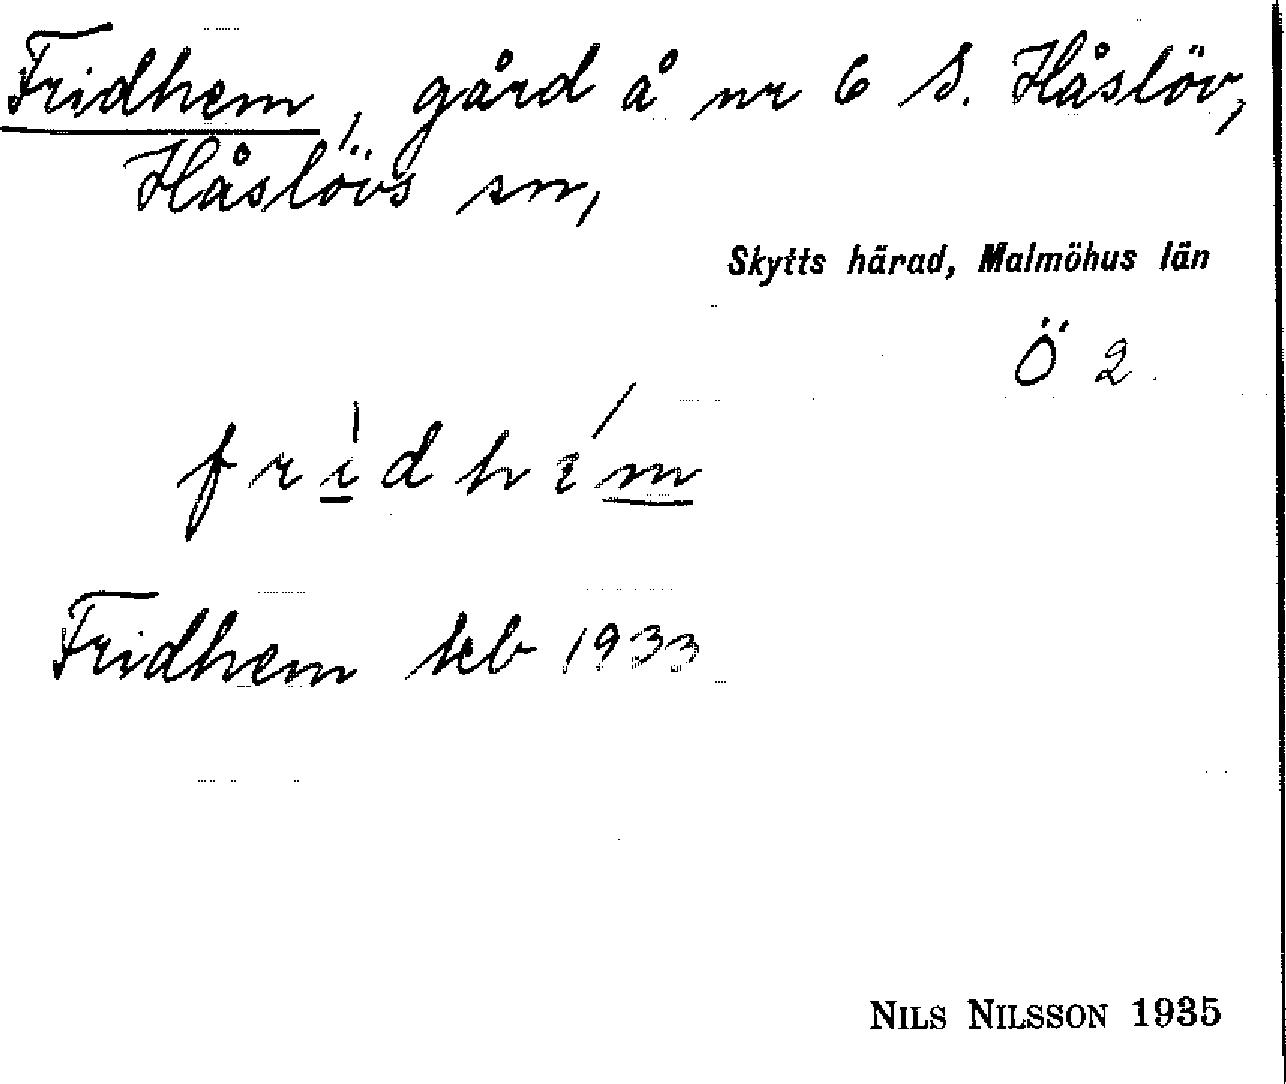 Fridhem, gård å nr 6 S. Håslöv,
Håslövs sn,
Skytts härad, Malmöhus län
Ö 2
fridhɛm
Fridhem kb 1933
NILS NILSSON 1935